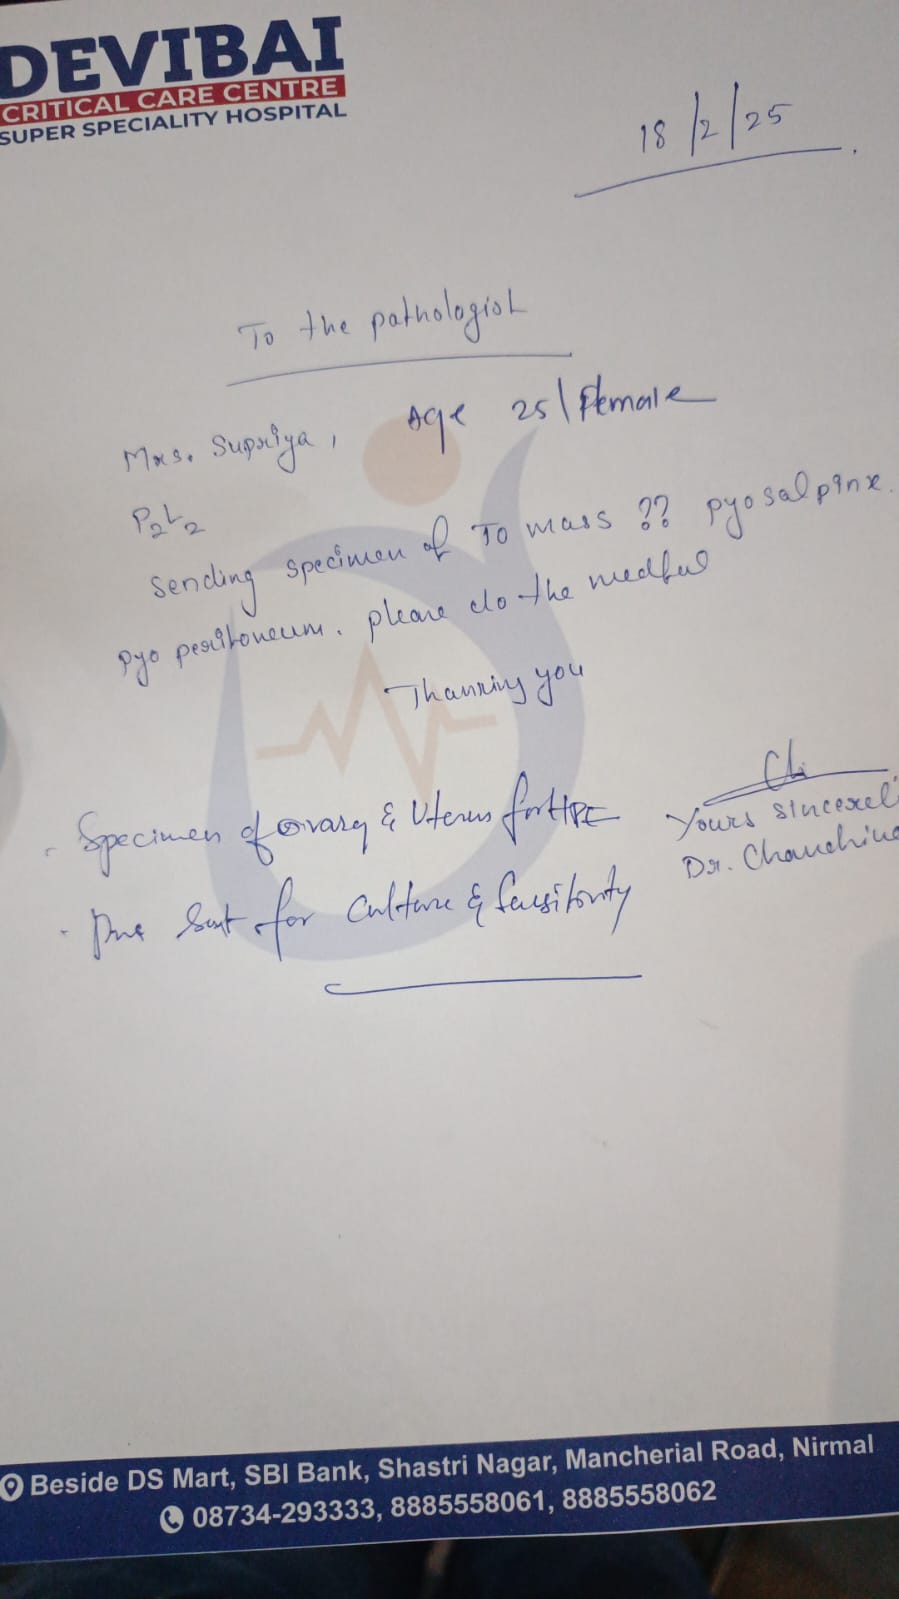 DEVIBAI
CRITICAL CARE CENTRE
SUPER SPECIALITY HOSPITAL
18/2/25
To the pathologist
Mrs. Supriya, Age 25\Female
P2L2
Sending specimen of TO mass ?? pyosalpinx.
pyo peritoneum. please do the needful
Thanking you
Yours sincerel
Dr. 
- Specimen of ovary & Uterus for HPE
- Pus sent for Culture & Sensitivity
Beside DS Mart, SBI Bank, Shastri Nagar, Mancherial Road, Nirmal
08734-293333, 8885558061, 8885558062